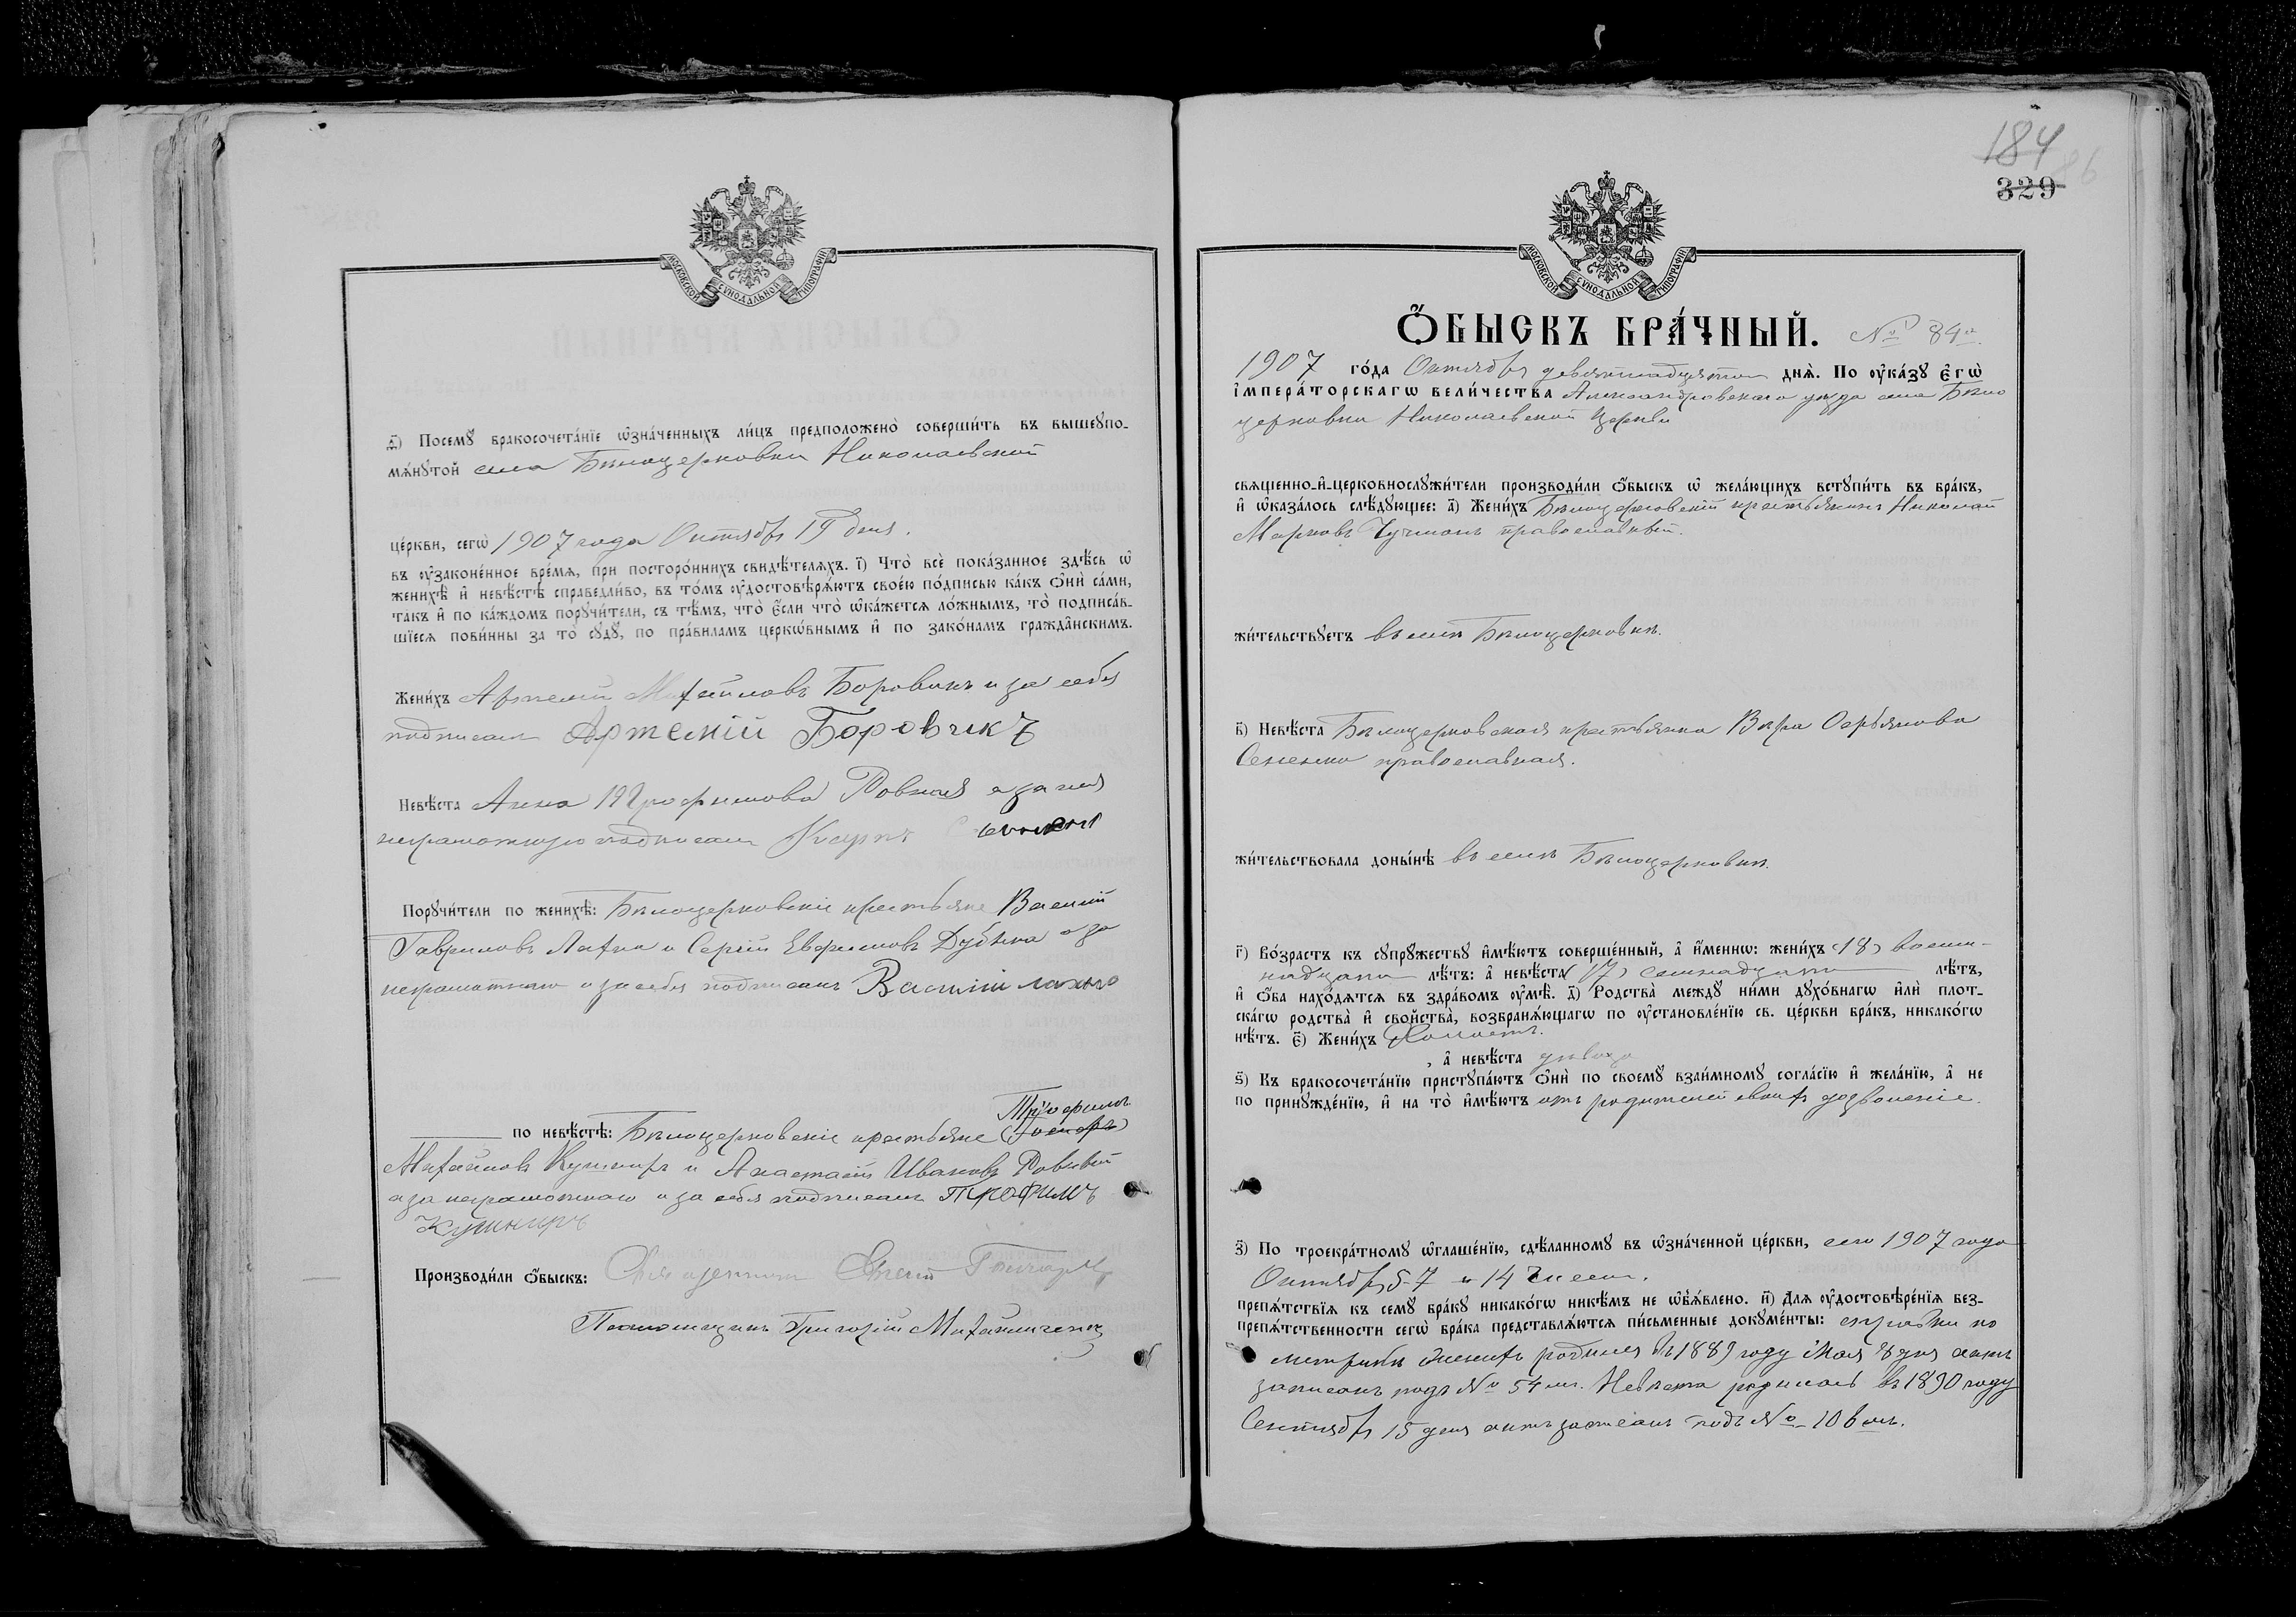 МОСКОВСКОЙ СѴНОДАЛЬНОЙ ТИПОГРАФІИ
д҃) Посемꙋ̀ бракосочета́нїе ѡ҆зна́ченныхъ ли́цъ предположено̀ соверши́ть въ вышеꙋпо-
мѧ́нꙋтой села Бѣлоцерковки Николаевской
це́ркви, сегѡ̀ 1907 года Октября 19 дня.
въ ᲂу҆зако́ненное вре́мѧ, при посторо́ннихъ свидѣ́телѧхъ. і҃) Что̀ всѐ пока́занное здѣ́сь ѡ҆
женихѣ̀ и҆ невѣ́стѣ справедли́во, въ то́мъ ᲂу҆достовѣрѧ́ютъ свое́ю по́дписью ка́къ ѻ҆нѝ са́ми,
та́къ и҆ по ка́ждомъ порꙋчи́тели, съ тѣ́мъ, что̀ є҆́сли что̀ ѡ҆ка́жетсѧ ло́жнымъ, то̀ подписа́в-
шїесѧ пови́нны за то̀ сꙋдꙋ̀, по пра́виламъ церкѡ́внымъ и҆ по зако́намъ гражда̂нскимъ.
Жени́хъ Артемій Михайловъ Боровикъ и за себя
подписалъ Артемій Боровикъ
Невѣ́ста Анна Трофимова Ровная а за нея
неграмотную подписалъ
Порꙋчи́тели по женихѣ̀: Бѣлоцерковскіе крестьяне Василій
Гавриловъ Лахно и Сергій Евфимовъ Дубяка а за
неграмотнаго и за себя подписалъ Василій Лахно
Трофимъ
по невѣ́стѣ: Бѣлоцерковскіе крестьяне
Михайловъ Кушниръ и Анастасій Ивановъ Ровный
а за неграмотнаго и за себя подписалъ Трофимъ
Кушниръ
Производи́ли ѻ҆́быскъ: Священникъ Евгеній Гончаръ
Псаломщикъ Григорій Михайличенко
184
86
329
МОСКОВСКОЙ СѴНОДАЛЬНОЙ ТИПОГРАФІИ
Ѻ҆́БЫСКЪ БРА́ЧНЫЙ. № 84й
1907 го́да Октября девятнадцатаго днѧ̀. По ᲂу҆ка́зꙋ є҆гѡ̀
і҆мпера́торскагѡ вели́чества Александровскаго уезда села Бѣло
церковки Николаевской церкви
свѧще́нно-и҆-церковнослꙋжи́тели производи́ли ѻ҆́быскъ ѡ҆ жела́ющихъ встꙋпи́ть въ бра́къ,
и҆ ѡ҆каза́лось слѣ́дꙋющее: а҃) Жени́хъ Бѣлоцерковскій крестьянинъ Николай
Марковъ Чучманъ православный.
жи́тельствꙋетъ въ селѣ Бѣлоцерковкѣ.
в҃) Невѣ́ста Бѣлоцерковская крестьянка Вѣра
Сененко православная.
жи́тельствовала доны́нѣ въ селѣ Бѣлоцерковкѣ.
г҃) Во́зрастъ къ сꙋпрꙋ́жествꙋ и҆мѣ́ютъ соверше́нный, а҆ и҆́меннѡ: жени́хъ (18) восем-
надцати лѣ́тъ: а҆ невѣ́ста (17) семнадцати лѣ́тъ,
и҆ ѻ҆́ба нахо́дѧтсѧ въ здра́вомъ ᲂу҆мѣ̀. д҃) Родства̀ междꙋ̀ ни́ми дꙋхо́внагѡ и҆лѝ плот-
ска́гѡ родства̀ и҆ сво́йства̀, возбранѧ́ющагѡ по ᲂу҆становле́нїю св. це́ркви бра́къ, никако́гѡ
нѣ́тъ. є҃) Жени́хъ Холостъ.
, а҆ невѣ́ста дѣвица
ѕ҃) Къ бракосочета́нїю пристꙋпа́ютъ ѻ҆нѝ по своемꙋ̀ взаи́мномꙋ согла́сїю и҆ жела́нїю, а҆ не
по принꙋжде́нїю, и҆ на то̀ и҆мѣ́ютъ отъ родителей своихъ дозволеніе.
з҃) По троекра́тномꙋ ѡ҆глаше́нїю, сдѣ́ланномꙋ въ ѡ҆зна́ченной це́ркви, сего 1907 года
Октября 5-7 и 14 чиселъ.
препѧ́тствїѧ къ семꙋ̀ бра́кꙋ никако́гѡ никѣ́мъ не ѡ҆б̾ѧ́влено. и҃) Длѧ ᲂу҆достовѣре́нїѧ без-
препѧ́тственности сегѡ̀ бра́ка представлѧ́ютсѧ пи́сьменные докꙋме́нты: справки по
метрикѣ Женихъ родился въ 1889 году Мая 8 дня актъ
записанъ подъ № 54 мъ. Невѣста родилась въ 1890 году
Сентября 15 дня актъ записанъ подъ № 106 мъ.